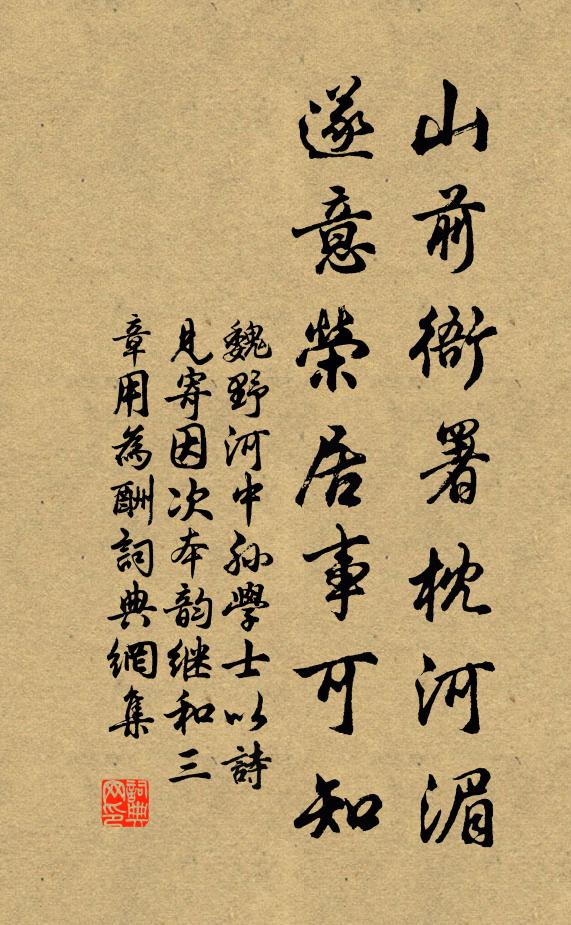 山前衙署枕河湄
遂意榮居事可知
魏野河中孫學士以詩
見寄因次本韵继和三
章用為酬詞典網集
詞典网印